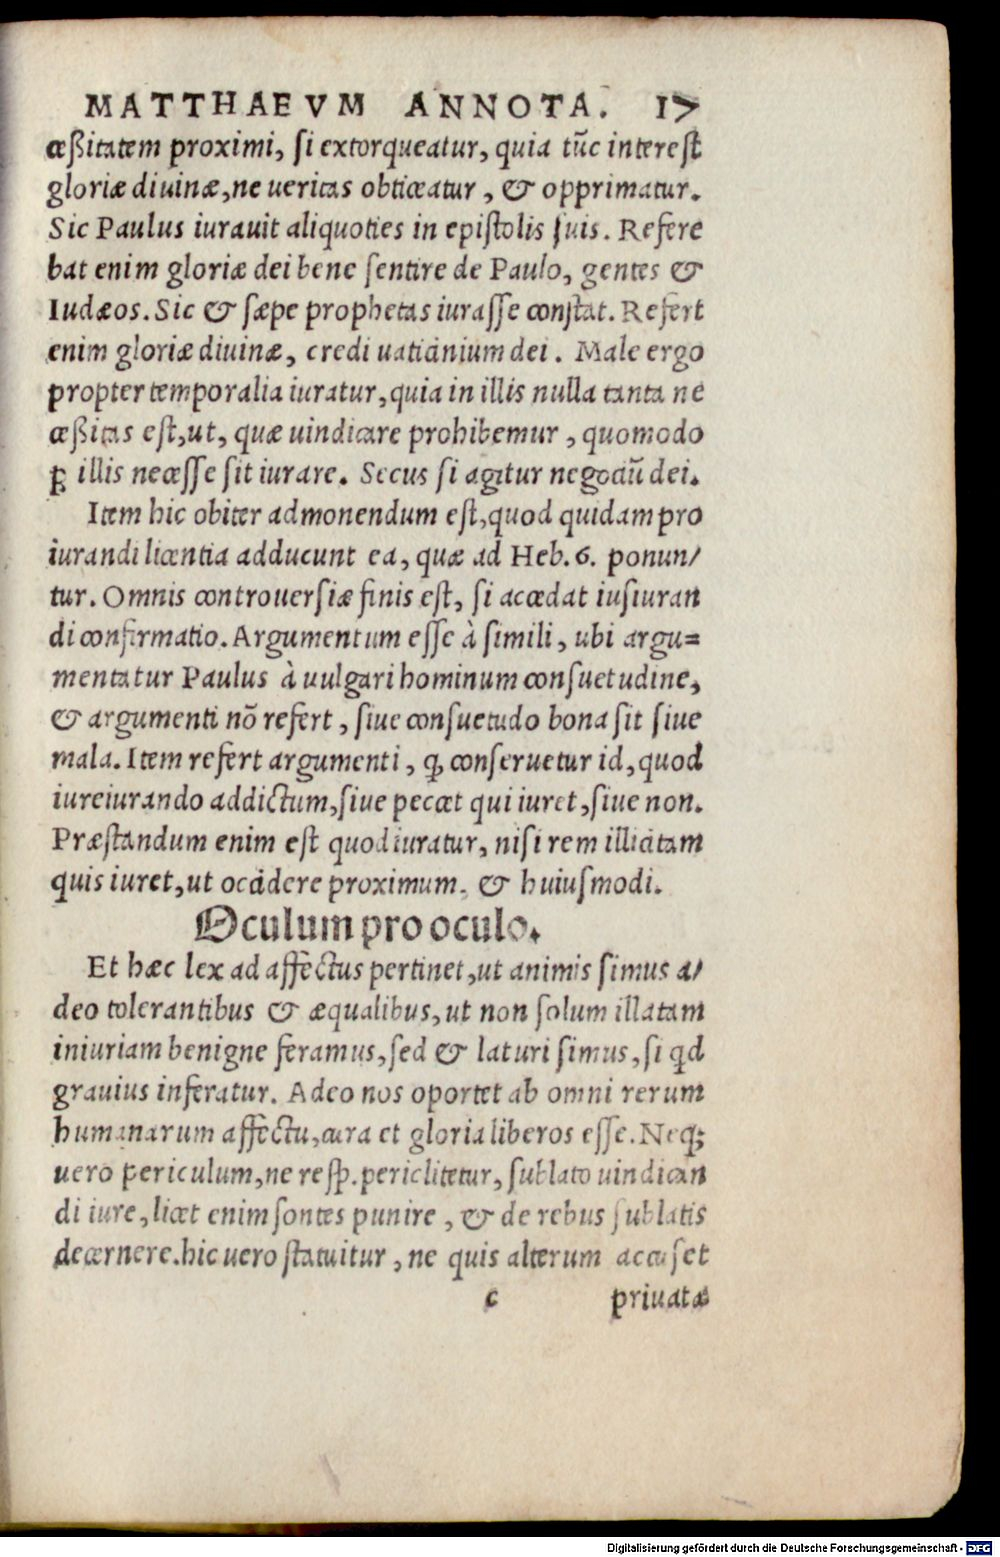 MATTHAEVM ANNOTA. 17
ceßitatem proximi, si extorqueatur, quia tūc interest
gloriæ diuinæ, ne ueritas obticeatur, & opprimatur.
Sic Paulus iurauit aliquoties in epistolis suis. Refere
bat enim gloriæ dei bene sentire de Paulo, gentes &
Iudæos. Sic & sæpe prophetas iurasse constat. Refert
enim gloriæ diuinæ, credi uaticinium dei. Male ergo
propter temporalia iuratur, quia in illis nulla tanta ne
ceßitas est, ut, quæ uindicare prohibemur, quomodo
ꝑ illis necesse sit iurare. Secus si agitur negociū dei.
Item hic obiter admonendum est, quod quidam pro
iurandi licentia adducunt ea, quæ ad Heb. 6. ponun/
tur. Omnis controuersiæ finis est, si accedat iusiuran
di confirmatio. Argumentum esse à simili, ubi argu=
mentatur Paulus à uulgari hominum consuetudine,
& argumenti nõ refert, siue consuetudo bona sit siue
mala. Item refert argumenti, ꝙ conseruetur id, quod
iureiurando addictum, siue peccet qui iuret, siue non.
Præstandum enim est quod iuratur, nisi rem illicitam
quis iuret, ut occidere proximum, & huiusmodi.
Oculum pro oculo.
Et hæc lex ad affectus pertinet, ut animis simus a/
deo tolerantibus & æqualibus, ut non solum illatam
iniuriam benigne feramus, sed & laturi simus, si qd
grauius inferatur. Adeo nos oportet ab omni rerum
humanarum affectu, cura et gloria liberos esse. Neqꝫ
uero periculum, ne resp. periclitetur, sublato uindican
di iure, licet enim sontes punire, & de rebus sublatis
decernere. hic uero statuitur, ne quis alterum accuset
c priuatæ
Digitalisierung gefördert durch die Deutsche Forschungsgemeinschaft - DFG